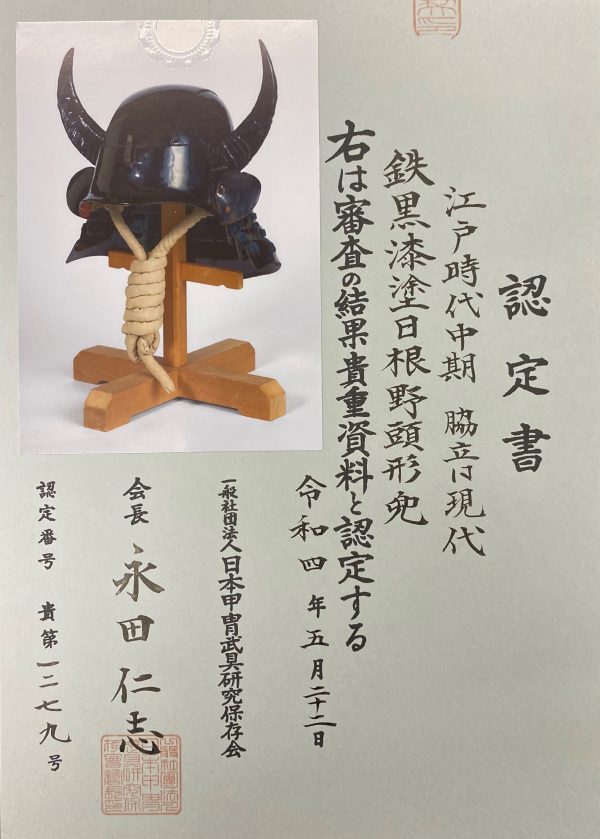 認定書
江戸時代中期 脇立は現代
鉄黒漆塗日根野頭形兜
右は審査の結果貴重資料と認定する
令和四年五月二十二日
一般社団法人日本甲冑武具研究保存会
会長 永田仁志
認定番号 貴第一二七九号